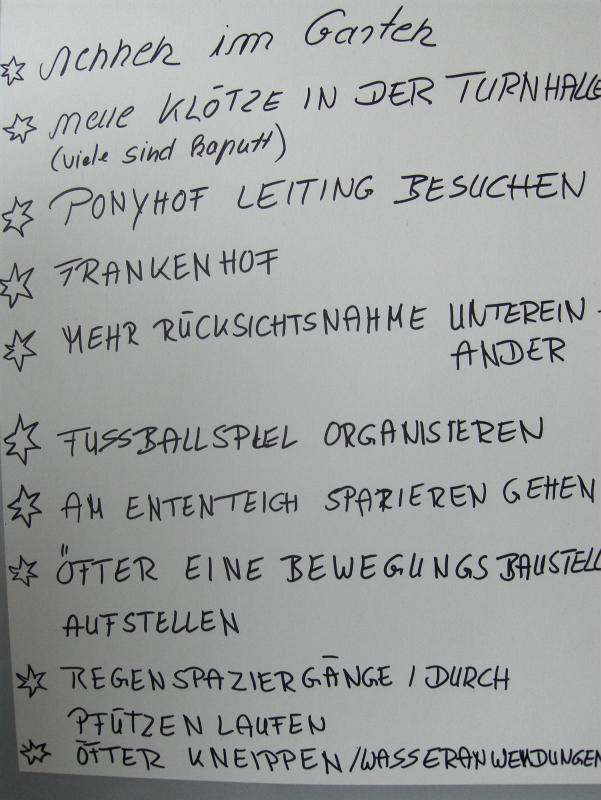 Rennen im Garten
neue KLÖTZE IN DER TURNHALLE
(viele sind kaputt)
PONYHOF LEITING BESUCHEN
FRANKENHOF
MEHR RÜCKSICHTSNAHME UNTEREIN-
ANDER
FUSSBALLSPIEL ORGANISIEREN
AM ENTENTEICH SPAZIEREN GEHEN
ÖFTER EINE BEWEGUNGSBAUSTELL
AUFSTELLEN
REGENSPAZIERGÄNGE / DURCH
PFÜTZEN LAUFEN
ÖFTER KNEIPPEN/WASSERANWENDUNGEN